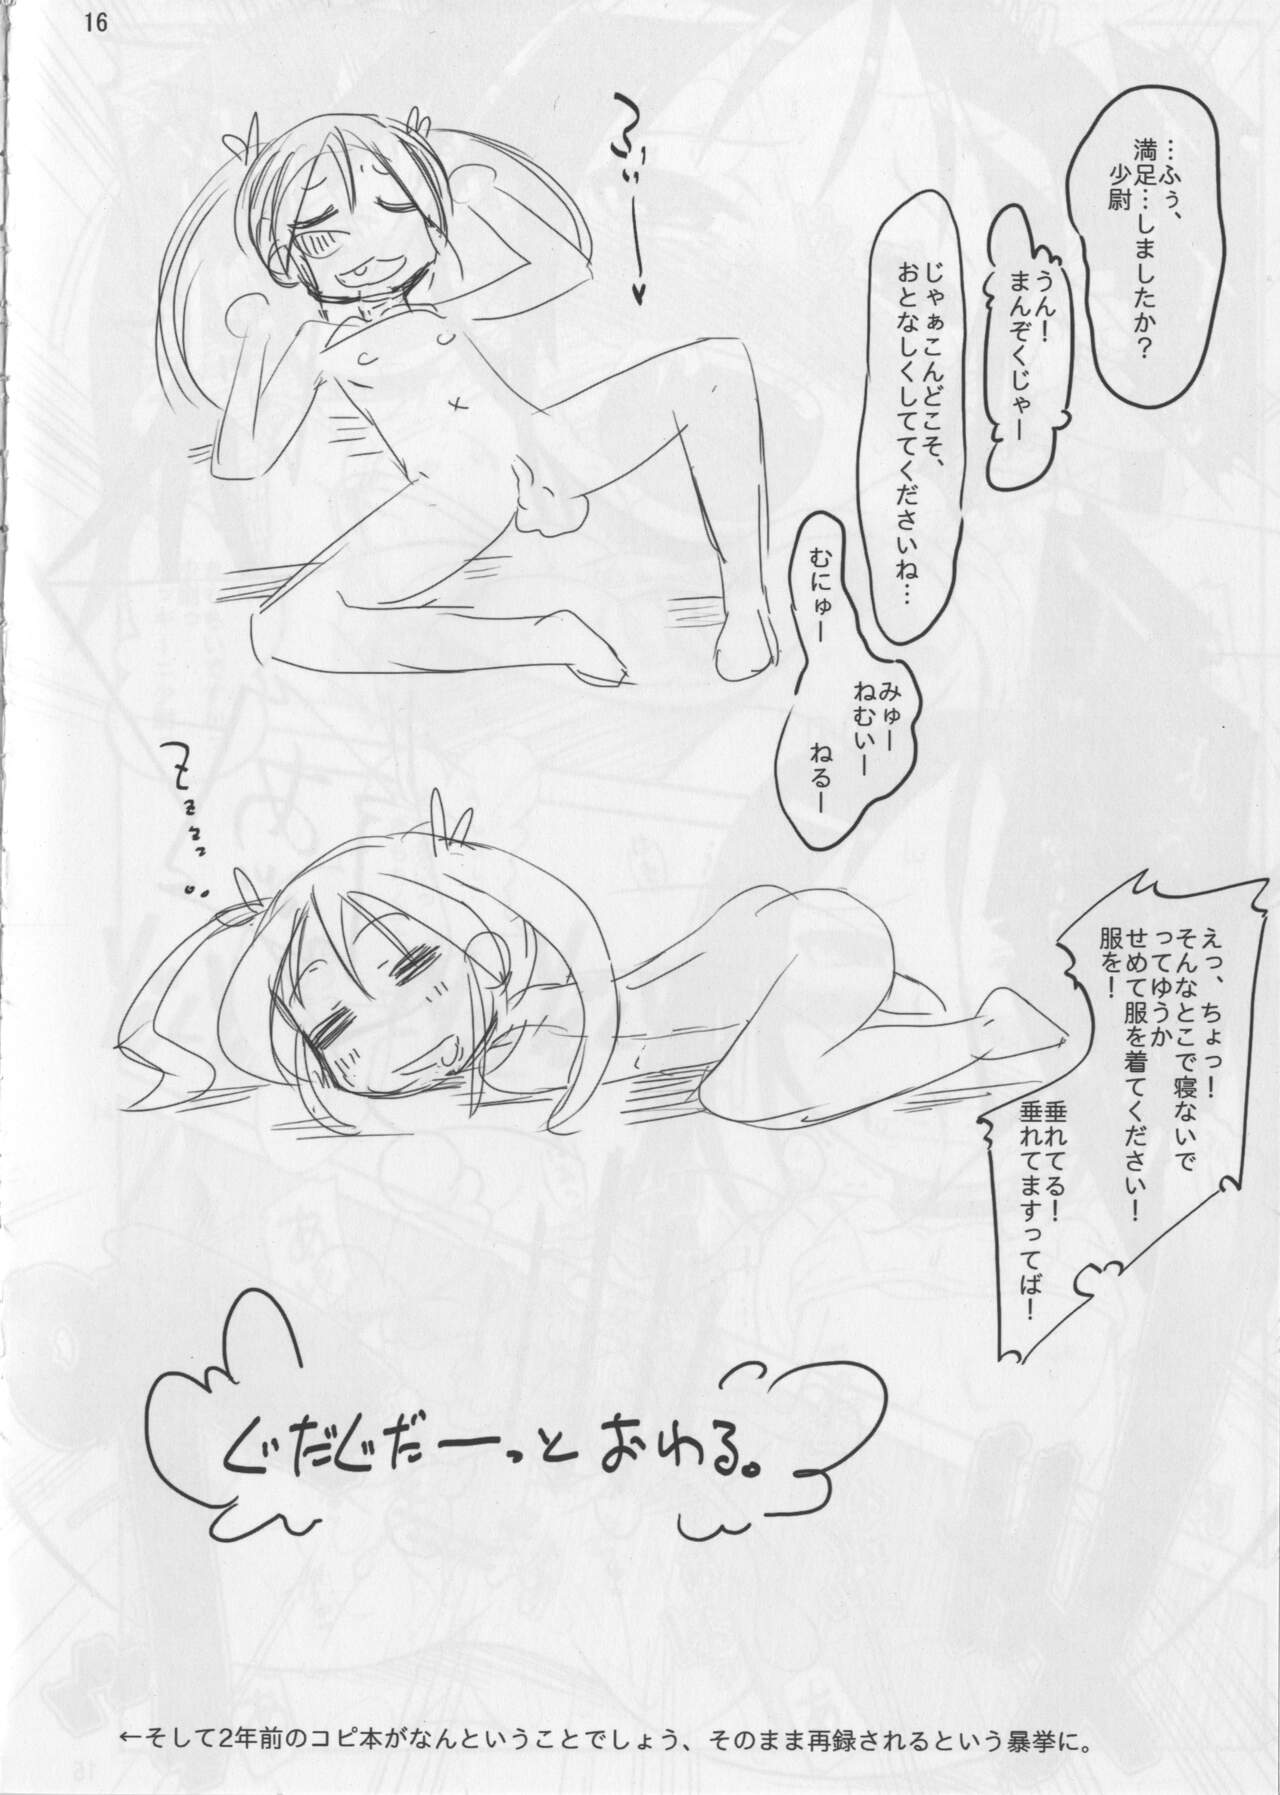 16
…ふぅ、
満足…しましたか？
少尉
うん！
まんぞくじゃー
じゃぁこんどこそ、
おとなしくしててくださいね…
ふぃー
むにゅー
みゅー
ねむいー
ねるー
えっ、ちょっ！
そんなとこで寝ないで
ってゆうか
せめて服を着てください！
服を！
垂れてる！
垂れてますってば！
ぐだぐだーっとおわる。
←そして2年前のコピ本がなんということでしょう、そのまま再録されるという暴挙に。